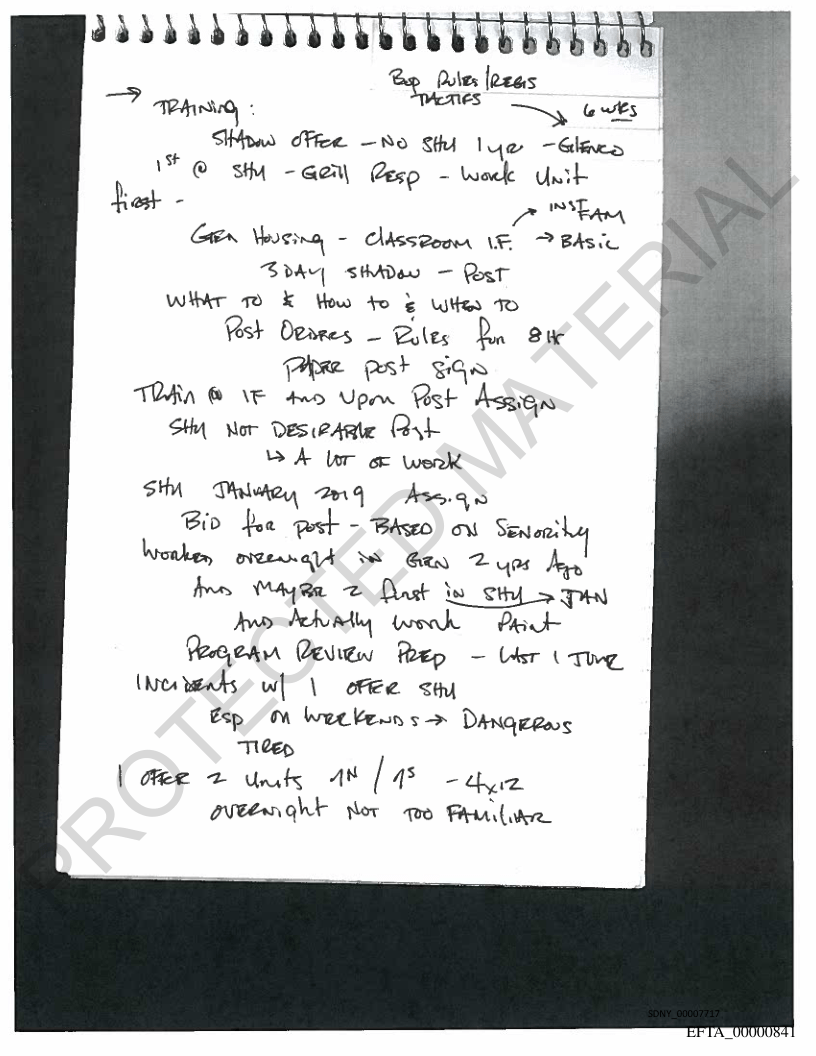 BOP RULES/REGS
TACTICS
6 WKS
→ TRAINING:
SHADOW OFFCR - NO SHU 1 YR - GLENCO
1st @ SHU - GRill RESP - WORK UNIT
first -
INST FAM
GEN HOUSING - CLASSROOM I.F. → BASIC
3 DAY SHADOW - POST
WHAT TO & HOW TO & WHEN TO
POST ORDERS - RULES for 8 HR
PAPER POST SIGN
TRAIN @ IF AND UPON POST ASSIGN
SHU NOT DESIRABLE POST
↳ A LOT OF WORK
SHU JANUARY 2019 ASSIGN
BID for POST - BASED ON SENORITY
WORKED OVERNIGHT IN GEN 2 YRS AGO
AND MAYBE 2 first in SHU → JAN
AND ACTUALLY WORK PAINT
PROGRAM REVIEW PREP - LAST 1 JUNE
INCIDENTS W/ 1 OFFCR SHU
ESP ON WEEKENDS → DANGEROUS
TIRED
1 OFFCR 2 UNITS 9N / 9S - 4x12
OVERNIGHT NOT TOO FAMILIAR
PROTECTED MATERIAL
SDNY_00007717
EFTA_00000841